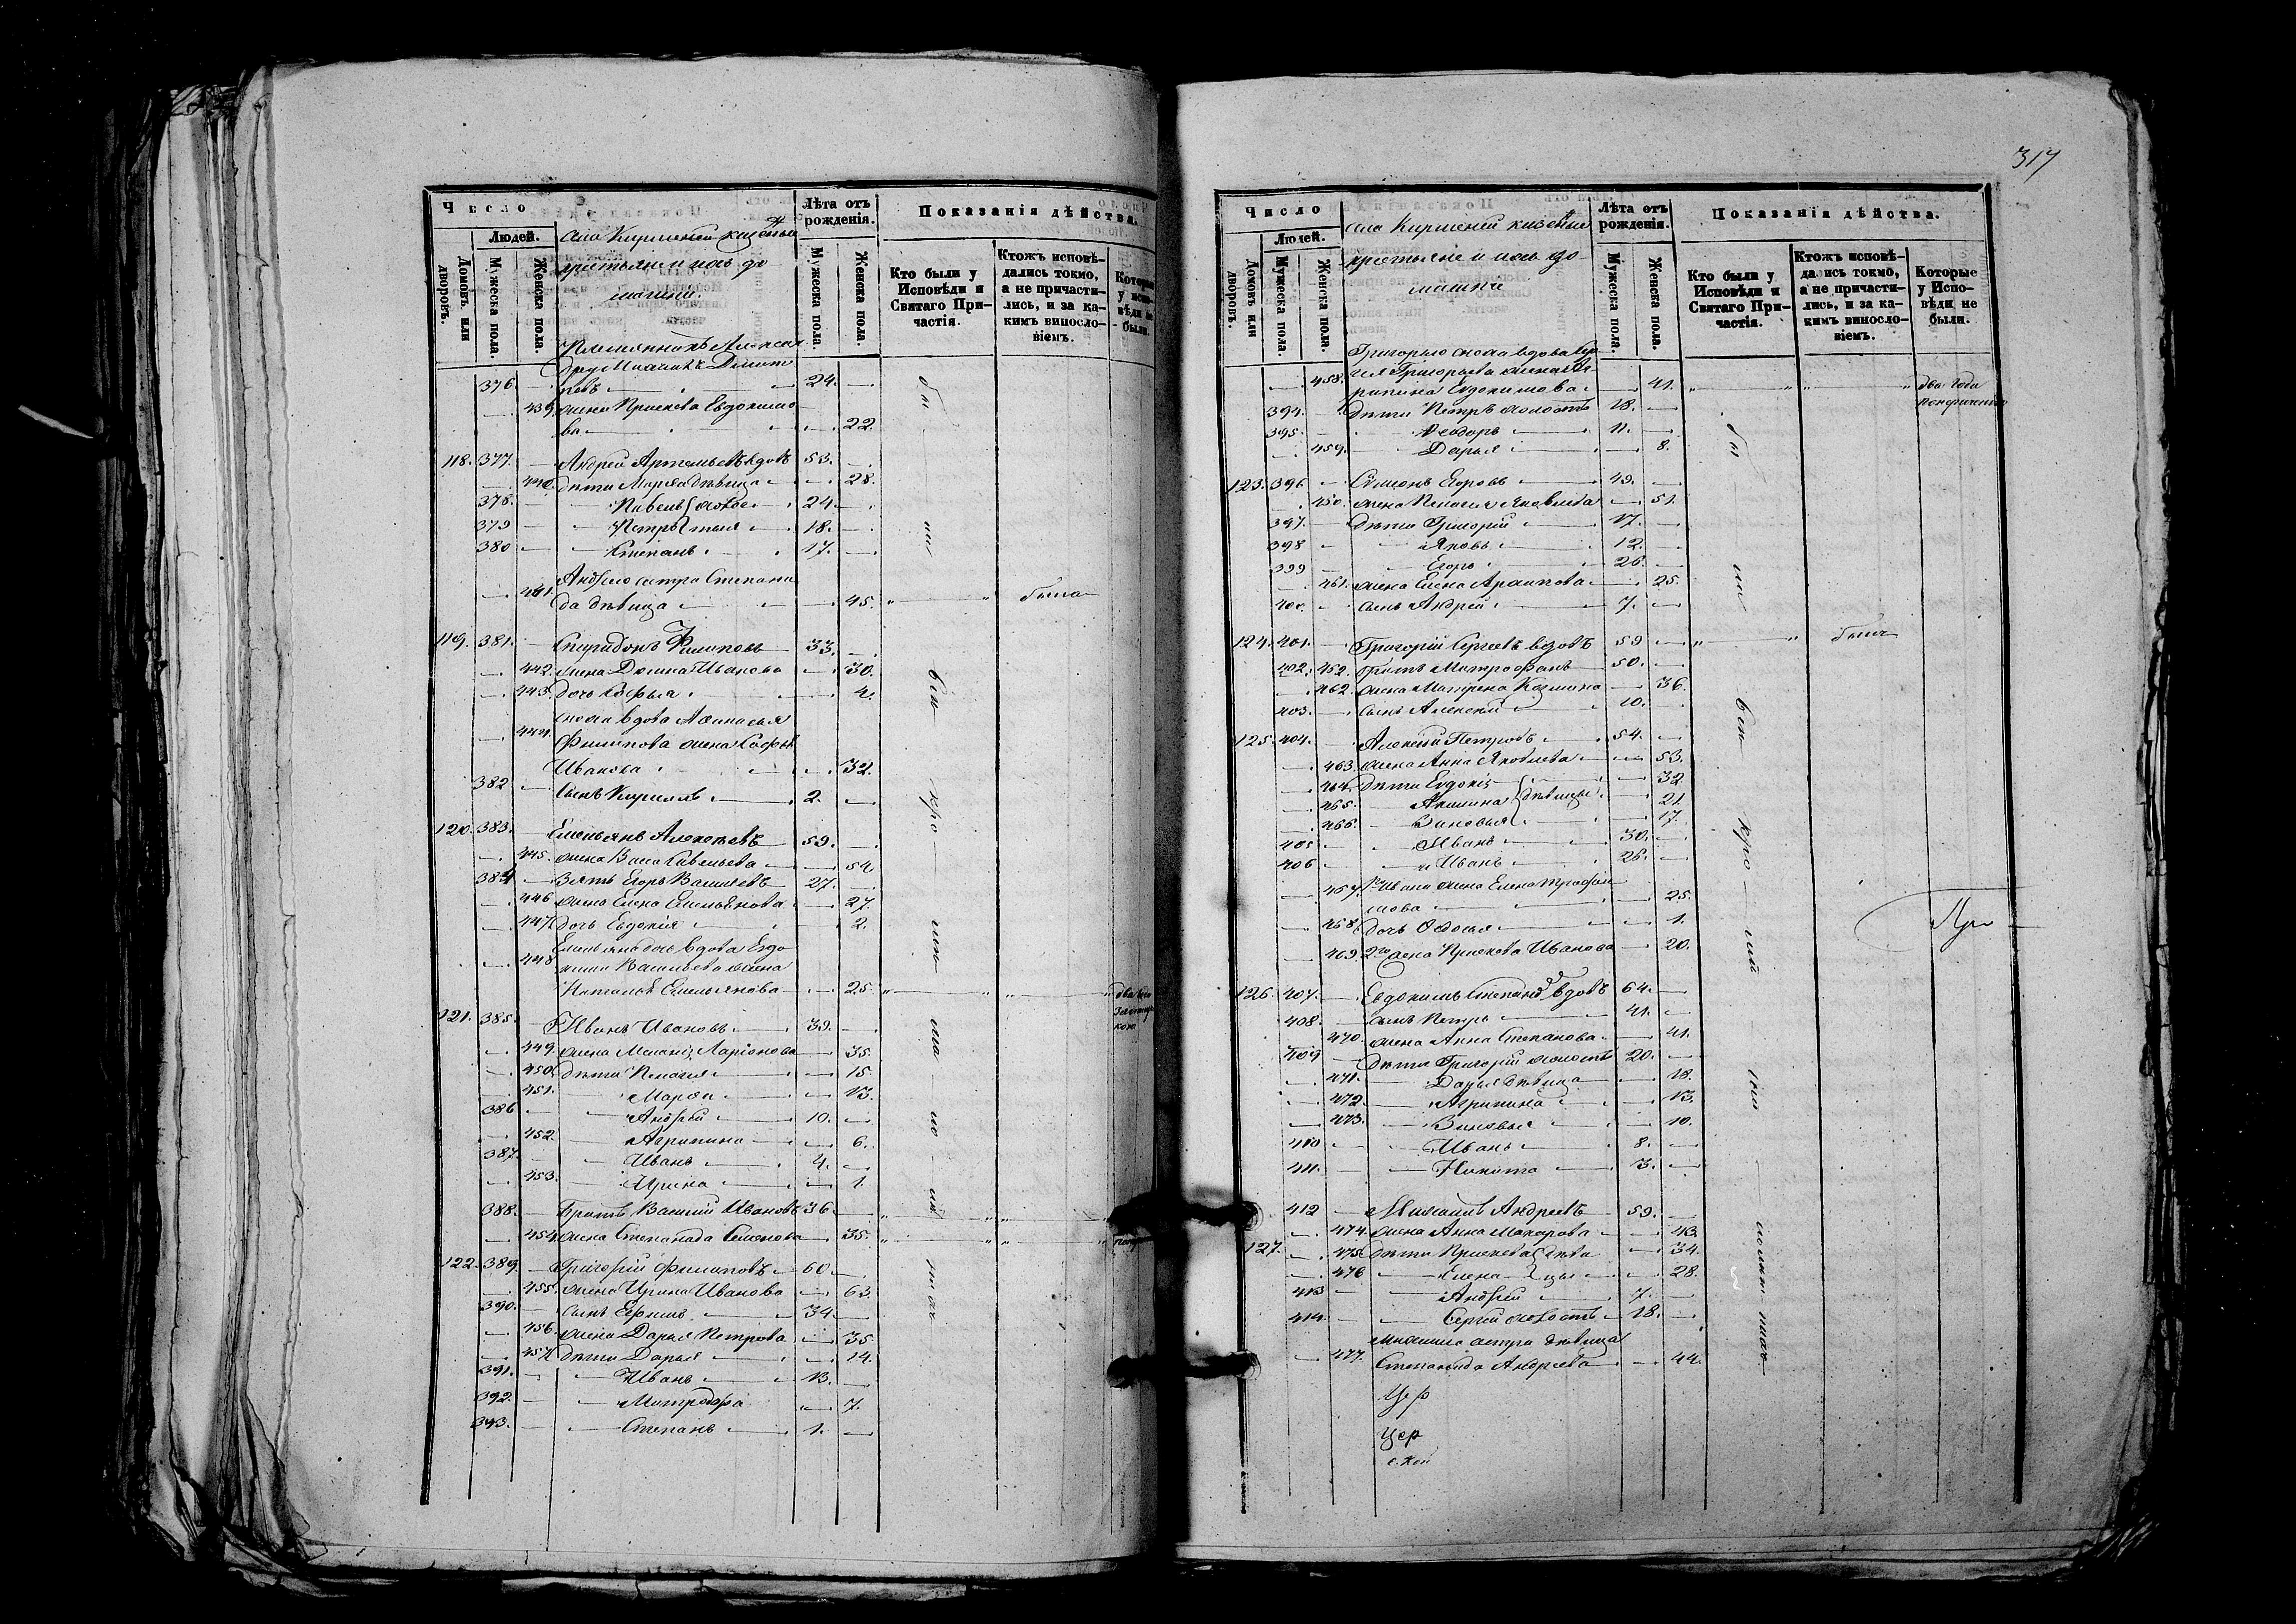 Число
Людей.
Домовъ или дворовъ.
Мужеска пола.
Женска пола.
Лѣта отъ рожденія.
Мужеска пола.
Женска пола.
Показанія дѣйства.
Кто были у Исповѣди и Святаго Причастія.
Ктожъ исповѣдались токмо, а не причастились, и за какимъ винословіемъ.
крестьяне и ихъ до
машніе
376. 24.
439. жена Праскева Евдокимо
ва 22.
118. 377. Андрей Артемьевъ вдовъ 53.
440. дѣти Марѳа дѣвица 28.
378. Павелъ 24
379 Петръ 18.
380 Степанъ 17.
441. Андрею сестра Степани
да дѣвица 45. была
119. 381. Спиридонъ Филиповъ 33.
442. жена Домна Иванова 30.
443. дочь Софья 4.
444. сноха вдова Афанасья
Филипова жена Софья
Иванова 32.
382 сынъ Кирилъ 2.
120. 383. Емельянъ Алексѣевъ 59.
445. жена Васса Савельева 54
384 Зять Егоръ Васильевъ 27.
446 жена Елена Емельянова 27.
447 дочь Евдокія 2.
448 Емельяна дочь вдова Евдо
кима Васильева жена
Наталья Емельянова 25.
121. 385. Иванъ Ивановъ 39.
449 жена Меланія Ларіонова 35.
450. дѣти Пелагея 15.
451. Марѳа 13.
386 Андрей 10.
452. Агрипина 6.
387. Иванъ 4.
453. Ирина 1.
388. Братъ Василій Ивановъ 36
454. жена Степанида Семенова 35.
122. 389. Григорій Филиповъ 60
455. жена Ирина Иванова 63.
390. сынъ Ефимъ 34
456. жена Дарья Петрова 35
457. дѣти Дарья 14.
391. Иванъ 13.
392. Митродора 7.
393. Степанъ 1.
317
Число
Людей.
Домовъ или дворовъ.
Мужеска пола.
Женска пола.
Лѣта отъ рожденія.
Мужеска пола.
Женска пола.
Показанія дѣйства.
Кто были у Исповѣди и Святаго Причастія.
Ктожъ исповѣдались токмо, а не причастились, и за какимъ винословіемъ.
Которые у Исповѣди не были.
крестьяне и ихъ до
машніе
Григорью сноха вдова Сер
гея Григорьева жена Аг
458. рипина Евдокимова 41. два года
394. дѣти Петръ холостъ 18.
395. Ѳеодоръ 11.
459. Дарья 8.
123. 396 Симеонъ Егоровъ 49.
450. жена Пелагея Яковлева 51.
397. дѣти Григорій 17.
398 Яковъ 12.
399 Егоръ 26.
461. жена Елена Архипова 25.
400. сынъ Андрей 7.
124. 401. Григорій Сергѣевъ вдовъ 59 былъ
402. 452. братъ Митрофанъ 50.
462. жена Матрена Козмина 36.
403. сынъ Алексей 10.
125. 404. Алексѣй Петровъ 54.
463. жена Анна Яковлева 53.
464. дѣти Евдокія 32
465. Акилина дѣвицы 21
466. Зиновья 17.
405 Иванъ 30.
406 Иванъ 26.
467. 1го Ивана жена Елена Трофи
мова 25.
468. дочь Ѳедосья 1.
469. 2го жена Праскева Иванова 20.
126. 407. Евдокимъ Степановъ вдовъ 64.
408. сынъ Петръ 41.
470. жена Анна Степанова 41.
409 дѣти Григорій холостъ 20.
471. Дарья дѣвица 18.
472. Агрипина 13.
473. Зиновья 10.
410 Иванъ 8.
411. Никита 3.
412 Михаилъ Андреевъ 59.
474. жена Анна Макарова 43.
127. 475. дѣти Праскева дѣви 34.
476 Елена цы 28.
413 Андрей 7.
414. Сергей холостъ 18.
Михаила сестра дѣвица
477. Степанида Андреева 44.
Цер
Цер